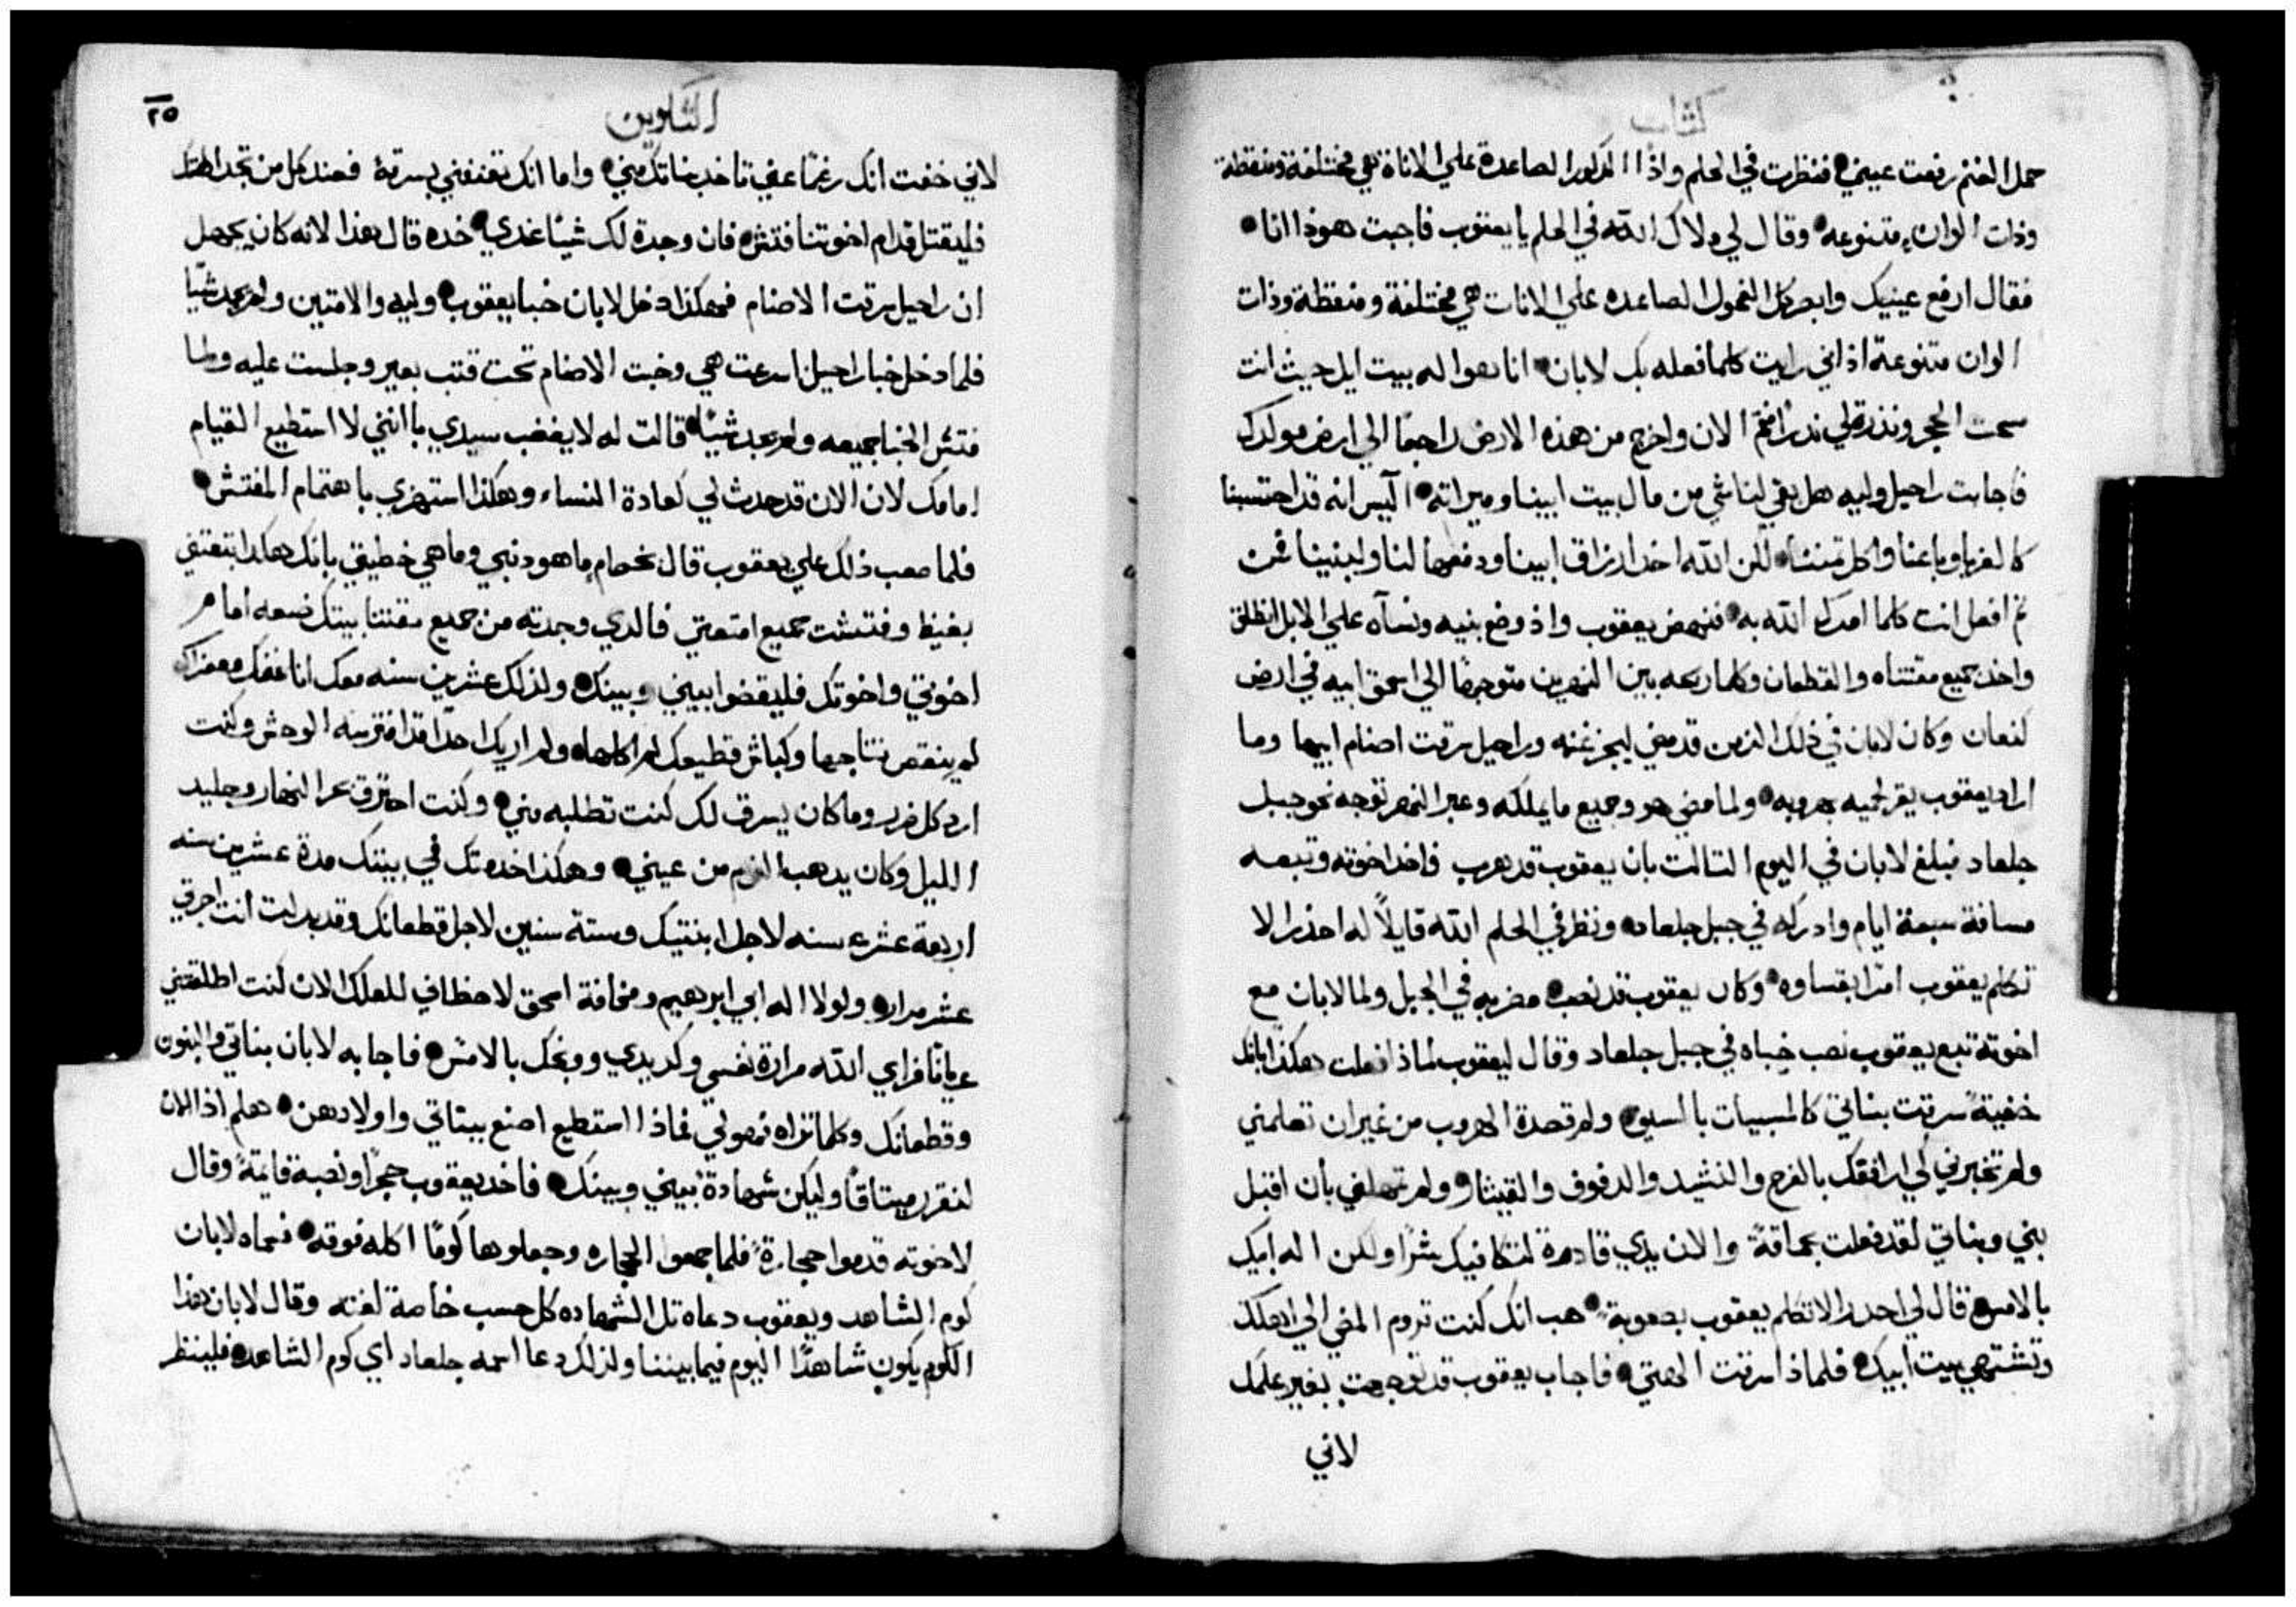 كتاب
حمل الغنم رفعت عيني فنظرت في الحلم واذا الذكور الصاعدة علي الاناة هي مختلفة ومنقطة
وذات الوان متنوعه وقال لي ملاك الله في الحلم يا يعقوب فاجبت هوذا انا
فقال ارفع عينيك وابصر كل الفحول الصاعده علي الانات هي مختلفة ومنقطة وذات
الوان متنوعة اذ اني رايت كلما فعله بك لابان انا هو اله بيت ايل حيث انت
مسحت الحجر ونذرة لي نذرًا فقم الان واخرج من هذه الارض راجعًا الي ارض مولدك
فاجابت راحيل وليه هل بقي لنا شي من مال بيت ابينا وميراته اليس انه قد احتسبنا
كالغربا وباعنا واكل تمننا لكن الله اخد ارزاق ابينا ودفعها لنا ولبنينا فمن
ثم افعل انت كلما امرك الله به فنهض يعقوب واذ وضع بنيه ونسآه علي الابل انطلق
واخد جميع مقتناه والقطعان وكلما ربحه بين النهرين متوجهًا الي اسحق ابيه في ارض
كنعان وكان لابان في ذلك الزمن قد مضي ليجز غنمه وراحيل سرقت اصنام ابيها وما
اراد يعقوب يقر لحميه بهروبه ولما مضي هو وجميع ما يملكه وعبر النهر توجه نحو جبل
جلعاد فبلغ لابان في اليوم التالت بان يعقوب قد هرب فاخد اخوته وتبعه
مسافة سبعة ايام وادركه في جبل جلعاد ونظر في الحلم الله قايلاً له احذر الا
تكلم يعقوب امرًا بقساوه وكان يعقوب قد نصب مضربه في الجبل ولما لابان مع
اخوته تبع يعقوب نصب خباه في جبل جلعاد وقال ليعقوب لماذا فعلت هكذا بانك
خفيةً سرقت بناتي كالمسبيات بالسيوف ولم قصدة الهروب من غير ان تعلمني
ولم تخبرني لكي ارافقك بالفرح والنشيد والدفوف والقيثار ولم تمهلني بان اقبل
بني وبناتي لقد فعلت بحماقةً والان يدي قادرة لتكافيك شرًا ولكن اله ابيك
بالامس قال لي احدر الا تكلم يعقوب بصعوبة هب انك كنت تروم المضي الي اهلك
وتشتهي بيت ابيك فلماذا سرقت الهتي فاجاب يعقوب قد توجهت بغير علمك
لاني
التكوين
٢٥
لاني خفت انك رغمًا عني تاخد بناتك مني واما انك تقذفني بسرقة فعند كل من تجد الهتك
فليقتل قدام اخوتنا فتش فان وجدة لك شيئًا عندي خده قال هذا لانه كان يجهل
ان راحيل سرقت الاصنام فهكذا دخل لابان خبا يعقوب وليه والامتين ولم يجد شيًا
فلما دخل خبا راحيل اسرعت هي وخبت الاصنام تحت قتب بعير وجلست عليه ولما
فتش الخبا جميعه ولم يجد شيًا قالت له لا يغضب سيدي باانني لا استطيع القيام
امامك لان الان قد حدث لي كعادة النساء وهكذا استهزي باهتمام المفتش
فلما صعب ذلك علي يعقوب قال بخصام ما هو دنبي وما هي خطيتي بانك هكدا تتقفني
بغيظ وفتشت جميع امتعتي فالدي وجدته من جميع مقتنا بيتك ضعه امام
اخوتي واخوتك فليقضوا بيني وبينك ولذلك عشرين سنه معك انا غنمك ومعزاك
لم ينقص نتاجها وكباش قطيعك لم اكلها ولم اريك احدًا قد افترسه الوحش وكنت
ارد كل ضرر وما كان يسرق لك كنت تطلبه مني وكنت احترق بحر النهار وجليد
الليل وكان يدهب النوم من عيني وهكذا خدمتك في بيتك مدة عشرين سنه
اربعة عشره سنه لاجل ابنتيك وستة سنين لاجل قطعانك وقد بدلت انت اجرتي
عشر مرار ولولا اله ابي ابرهيم ومخافة اسحق لاحظافي للعلك الان كنت اطلقتني
عريانًا فراي الله مرارة نفسي وكد يدي ووبخك بالامس فاجابه لابان بناتي والبنون
وقطعانك وكلما تراه فهو لي فماذا استطيع اصنع ببناتي واولادهن هلم اذا الان
لنقرر ميتاقًا وليكن شهادة بيني وبينك فاخد يعقوب حجرًا ونصبه قايمةً وقال
لاخوته قدموا حجارةً فلما جمعوا الحجاره وجعلوها كومًا اكله فوقه فسماه لابان
كوم الشاهد ويعقوب دعاه تل الشهاده كل حسب خاصة لغته وقال لابان هذا
الكوم يكون شاهدًا اليوم فيما بيننا ولذلك دعا اسمه جلعاد اي كوم الشاهد فلينظر